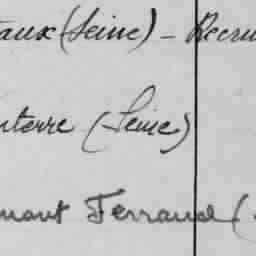 aux (Seine) - Recru
nterre (Seine)
mont Ferrand (